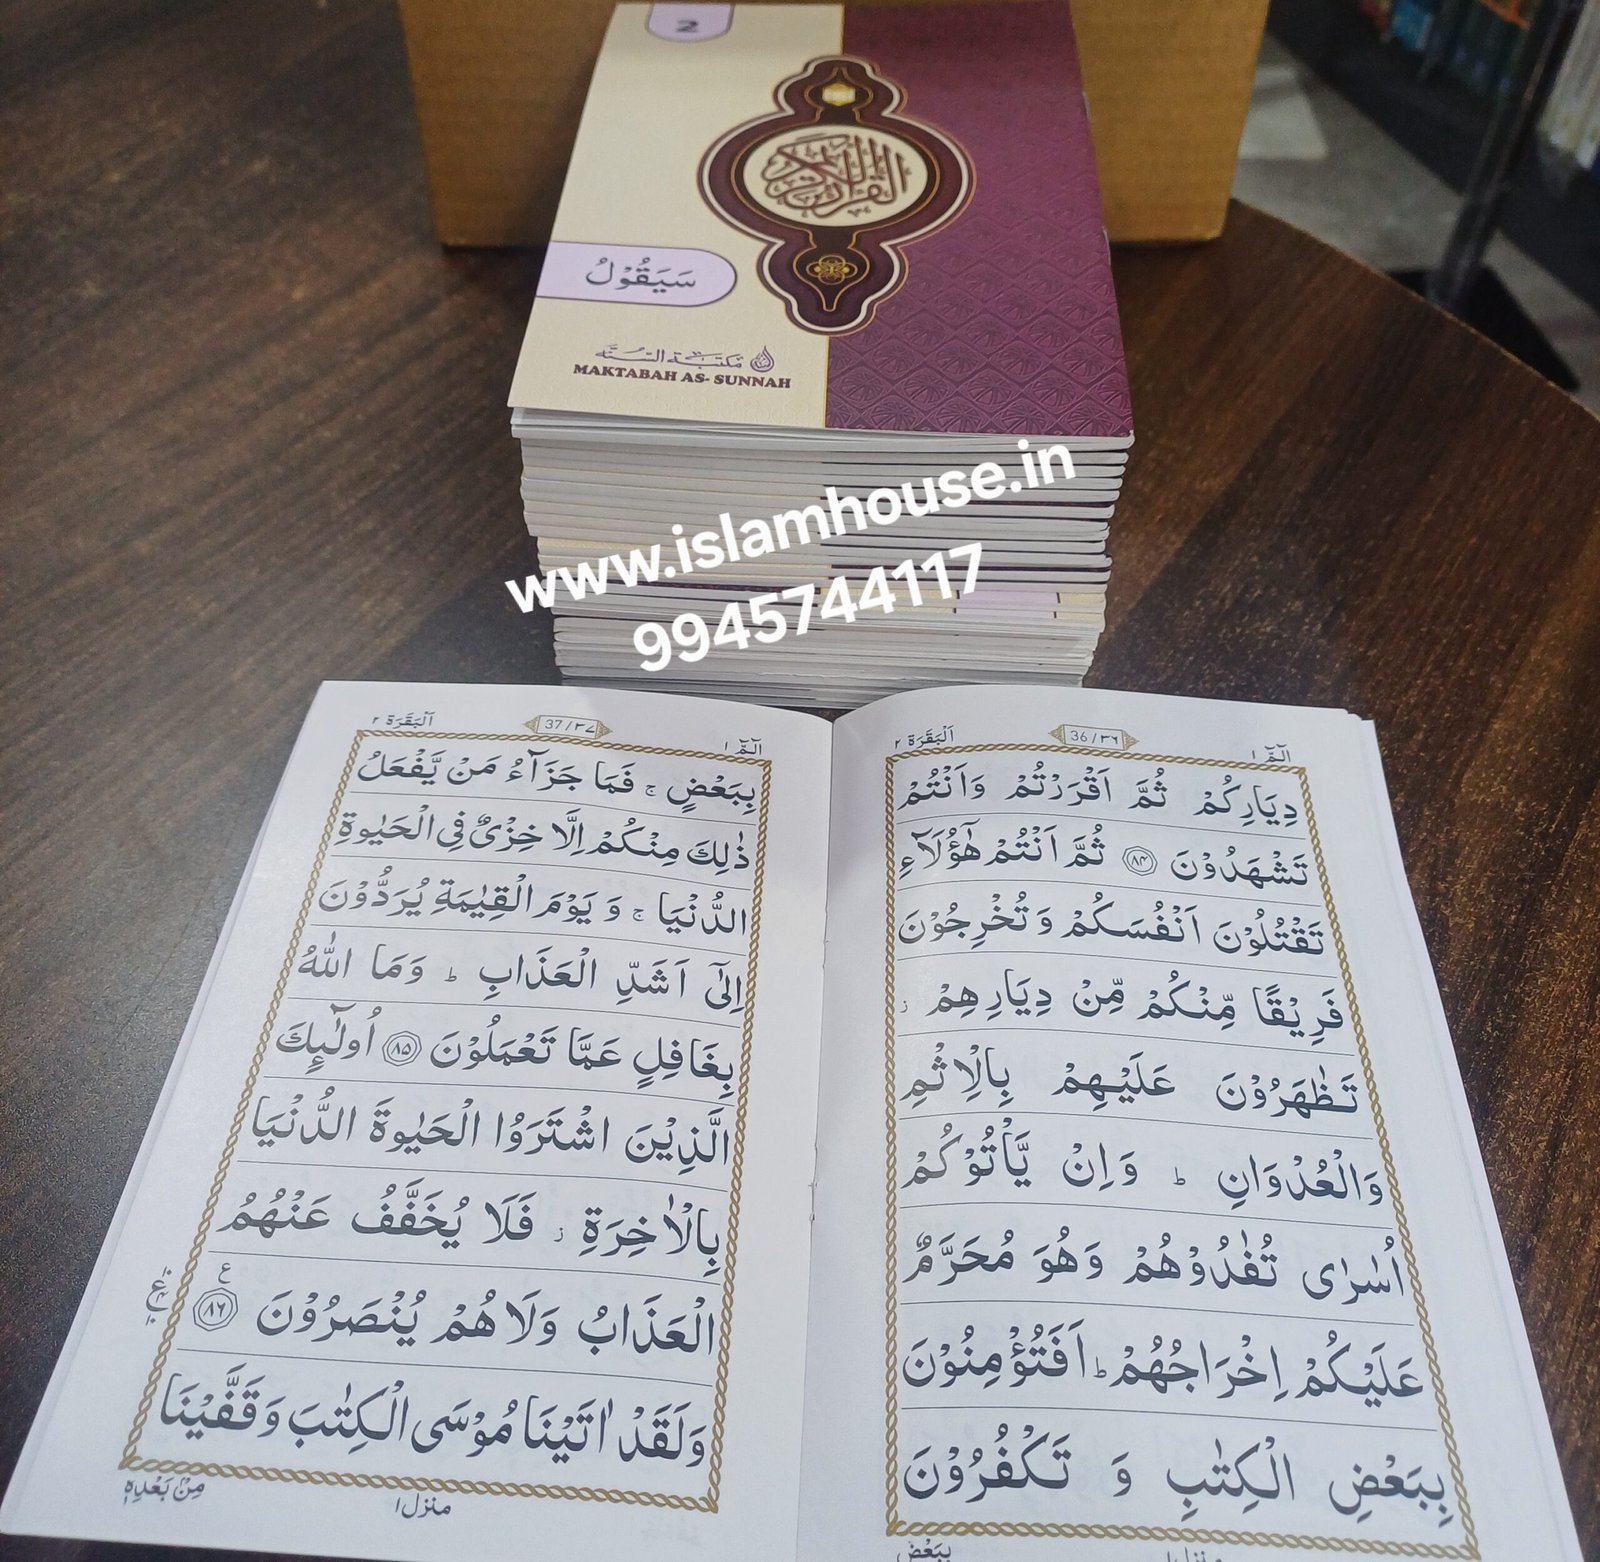 2
القرآن الكريم
سَيَقُوْلُ
مكتبة السنة
MAKTABAH AS- SUNNAH
www.islamhouse.in
9945744117
الٓمّٓ ١
36/٣٦
اَلْبَقَرَة ٢
دِيَارِكُمْ ثُمَّ اَقْرَرْتُمْ وَاَنْتُمْ
تَشْهَدُوْنَ ٨٤ ثُمَّ اَنْتُمْ هٰٓؤُلَآءِ
تَقْتُلُوْنَ اَنْفُسَكُمْ وَتُخْرِجُوْنَ
فَرِيْقًا مِّنْكُمْ مِّنْ دِيَارِهِمْ ز
تَظٰهَرُوْنَ عَلَيْهِمْ بِالْاِثْمِ
وَالْعُدْوَانِ ط وَاِنْ يَّاْتُوْكُمْ
اُسٰرٰى تُفٰدُوْهُمْ وَهُوَ مُحَرَّمٌ
عَلَيْكُمْ اِخْرَاجُهُمْ ط اَفَتُؤْمِنُوْنَ
بِبَعْضِ الْكِتٰبِ وَ تَكْفُرُوْنَ
منزل ١
بِبَعْضٍ
الٓمّٓ ١
37/٣٧
اَلْبَقَرَة ٢
بِبَعْضٍ ج فَمَا جَزَآءُ مَنْ يَّفْعَلُ
ذٰلِكَ مِنْكُمْ اِلَّا خِزْىٌ فِى الْحَيٰوةِ
الدُّنْيَا ج وَ يَوْمَ الْقِيٰمَةِ يُرَدُّوْنَ
اِلٰٓى اَشَدِّ الْعَذَابِ ط وَمَا اللّٰهُ
بِغَافِلٍ عَمَّا تَعْمَلُوْنَ ٨٥ اُولٰٓئِكَ
الَّذِيْنَ اشْتَرَوُا الْحَيٰوةَ الدُّنْيَا
بِالْاٰخِرَةِ ز فَلَا يُخَفَّفُ عَنْهُمُ
الْعَذَابُ وَلَا هُمْ يُنْصَرُوْنَ ٨٦ ع
وَلَقَدْ اٰتَيْنَا مُوْسَى الْكِتٰبَ وَقَفَّيْنَا
منزل ١
مِنْۢ بَعْدِهٖ